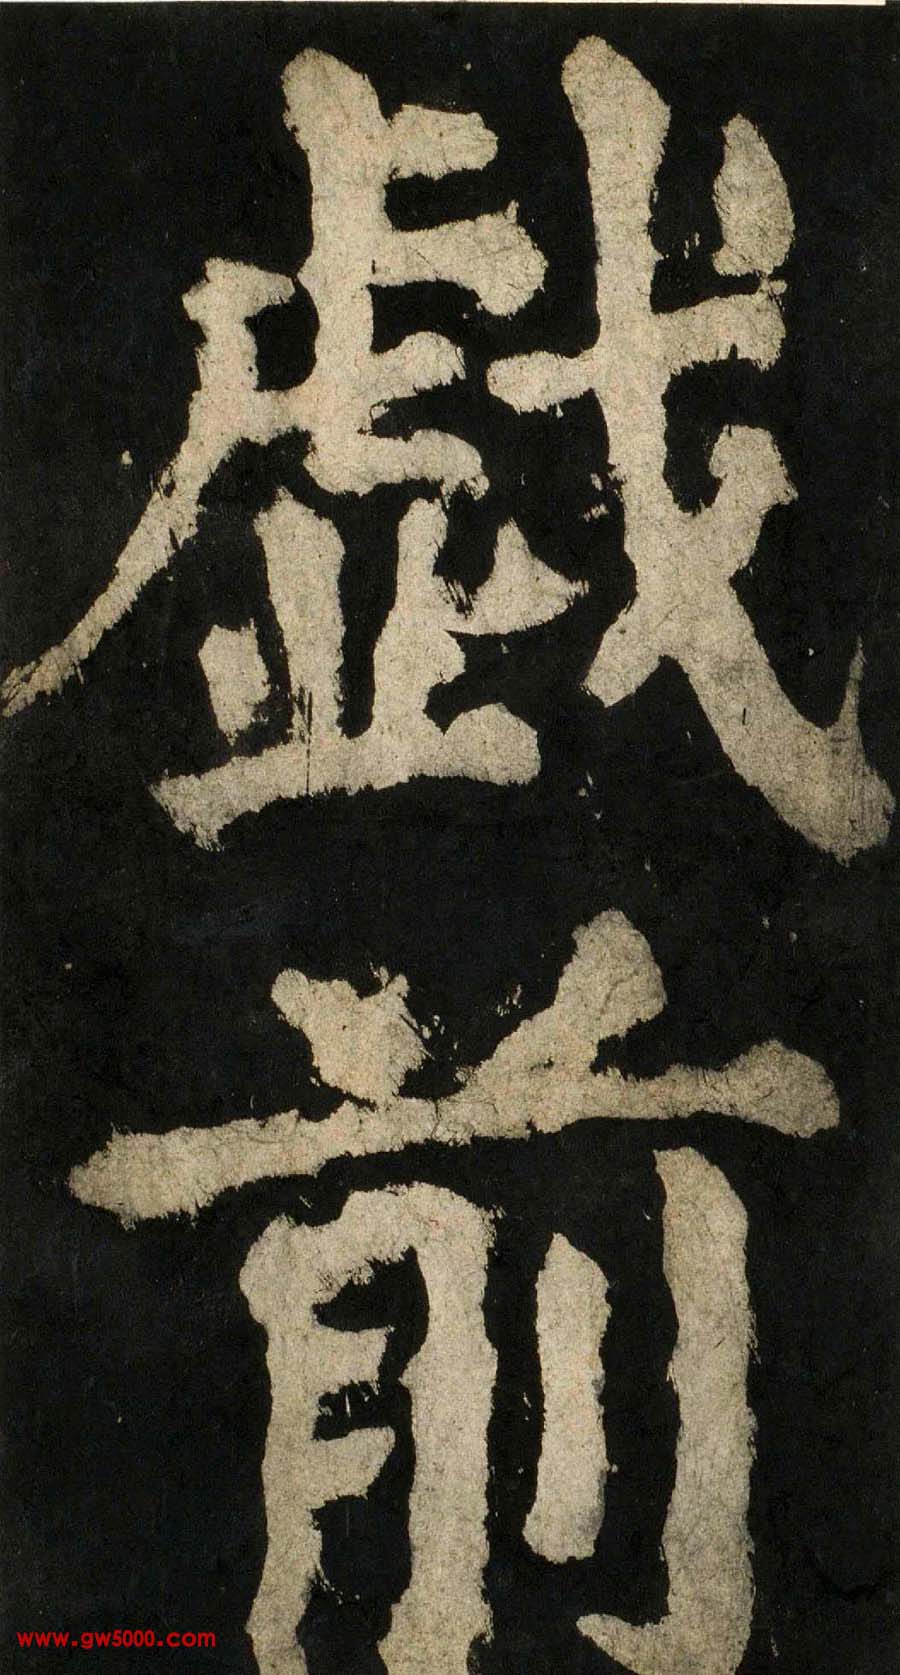 戯前
www.gw5000.com